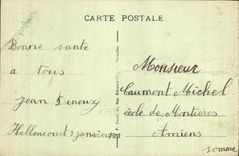 CARTE POSTALE
Bonne santé
a tous
Jean
Hallencourt 2 janvier
Monsieur
Caumont Michel
école de Montières
Amiens
Somme